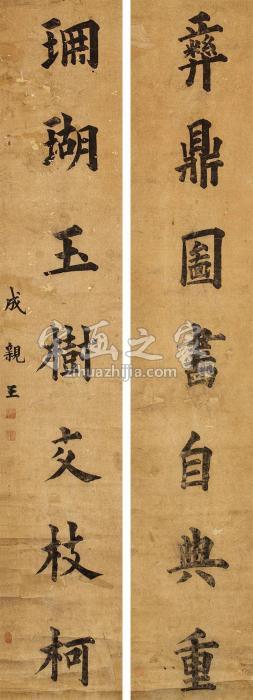 彝鼎圖書自典重
珊瑚玉樹交枝柯
成親王
字画之家
zihuazhijia.com